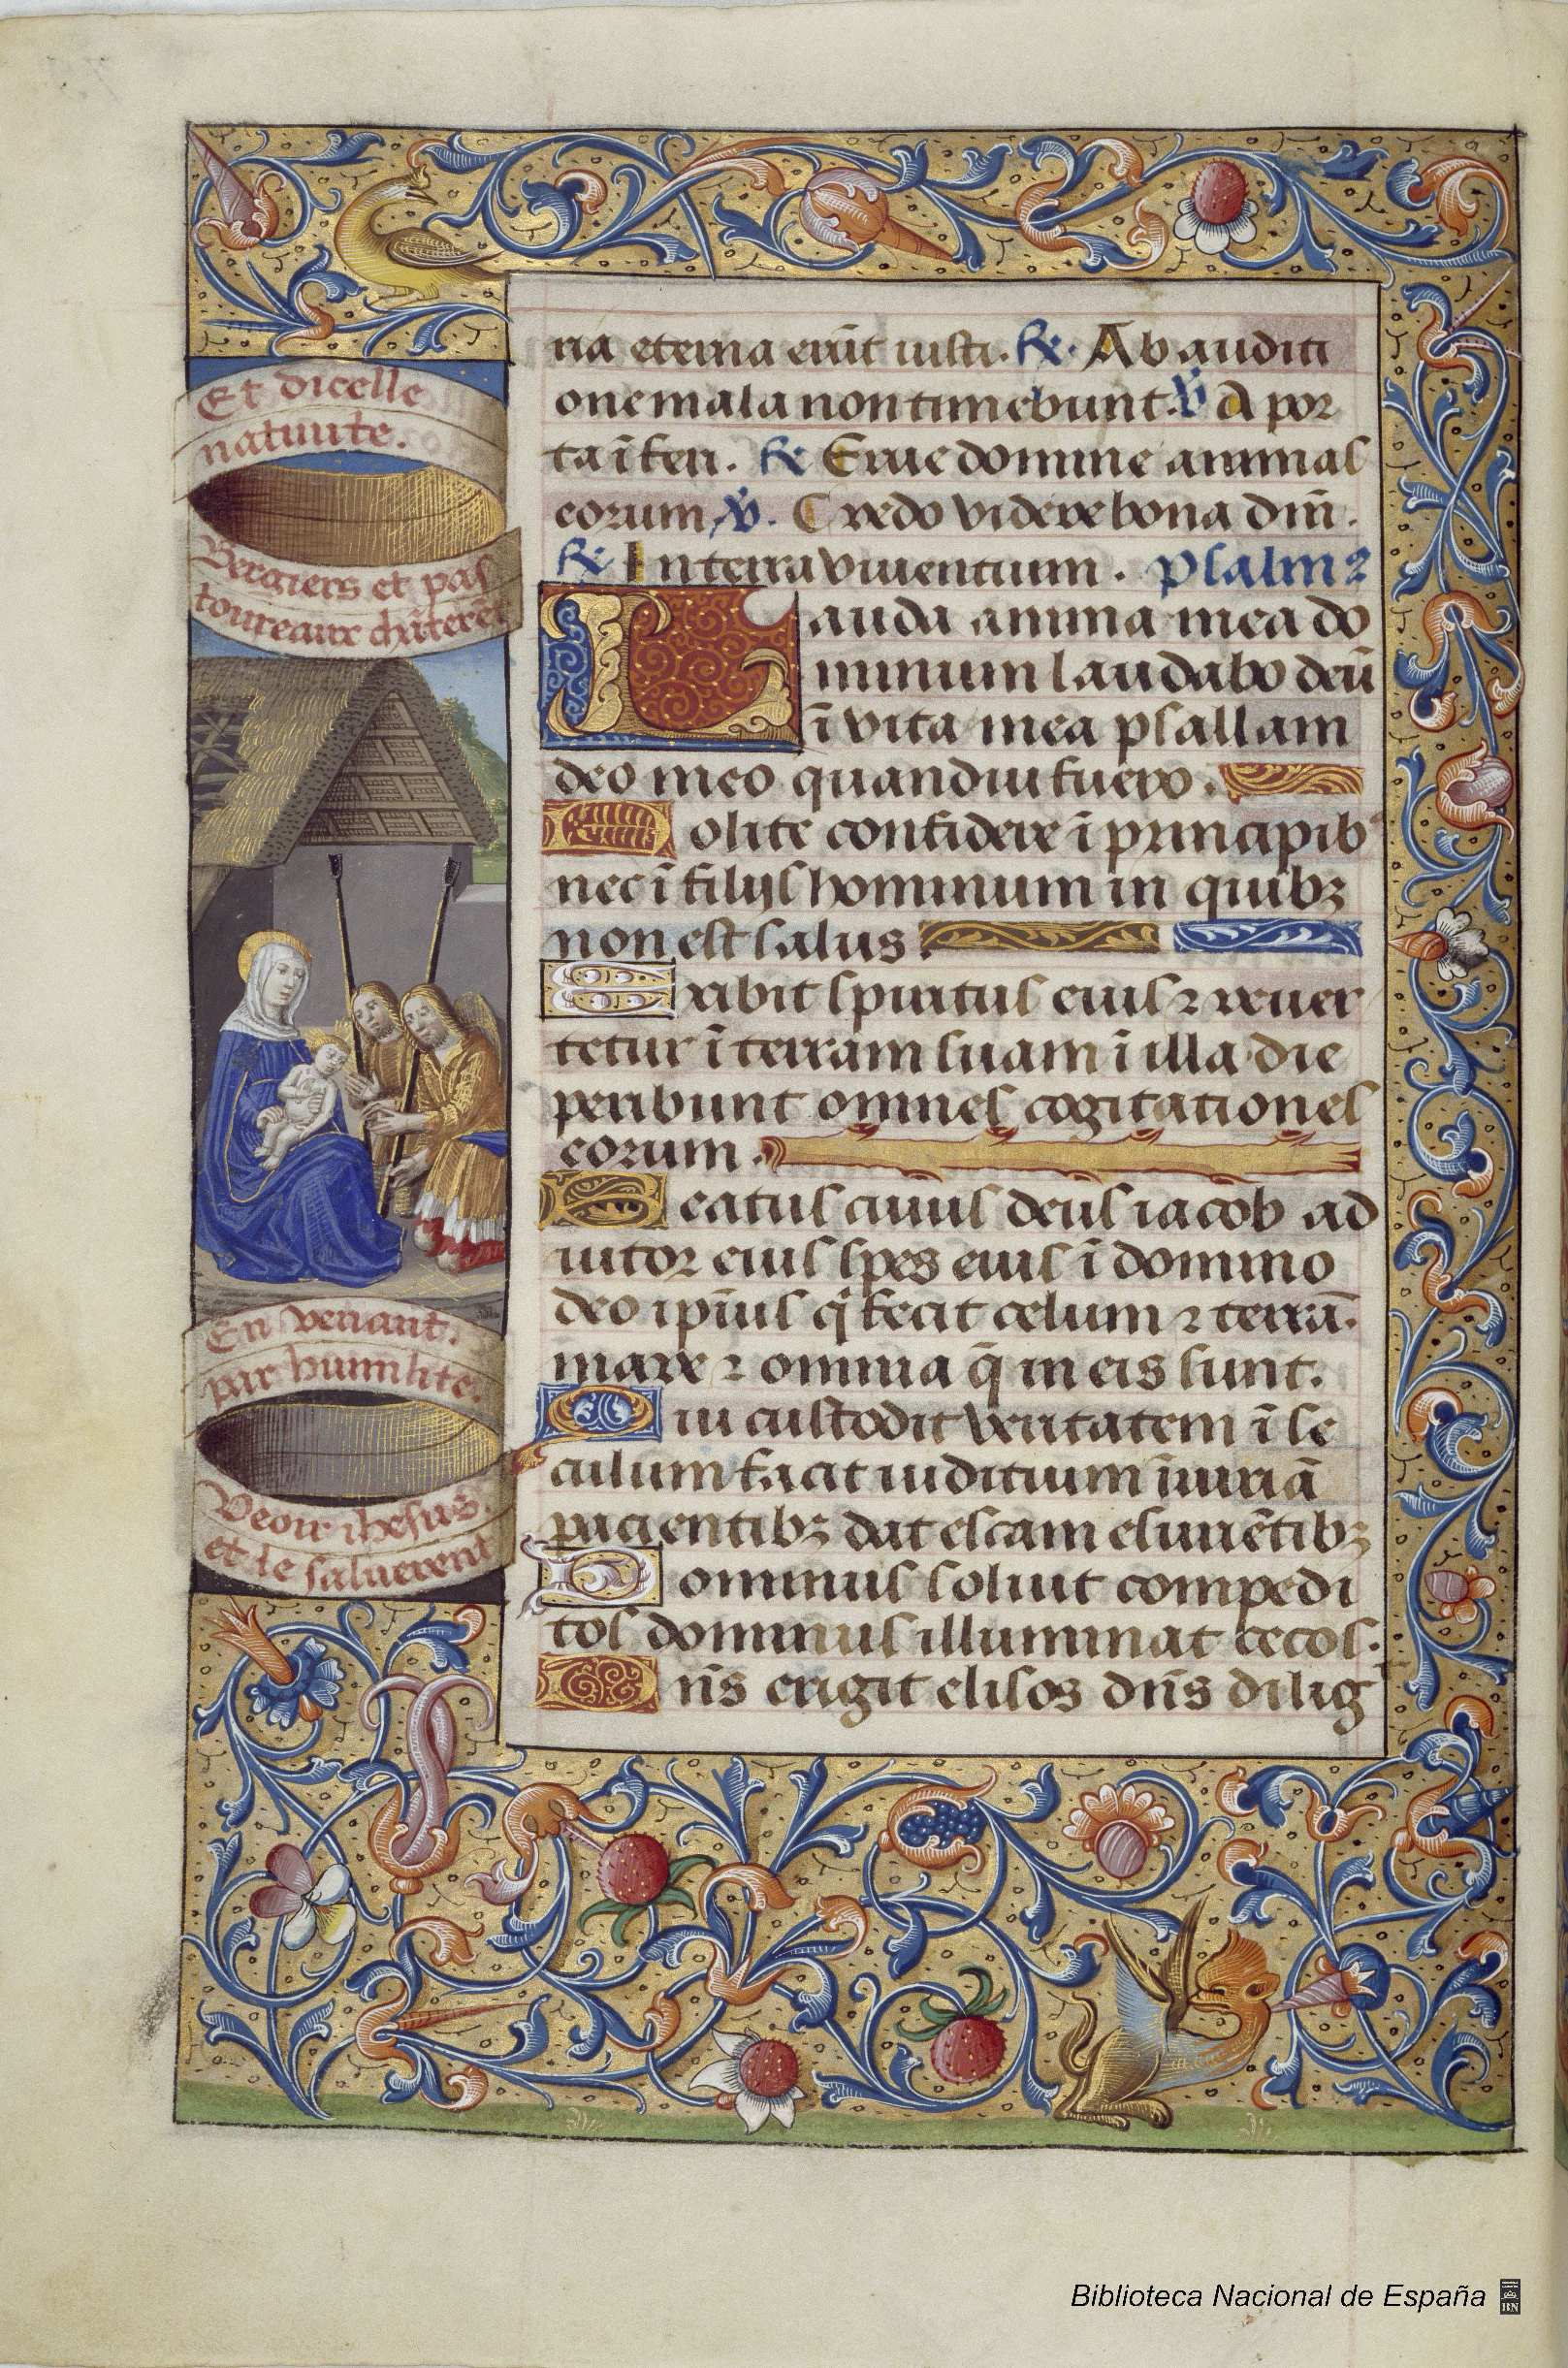 Et dicelle
natiuite.
Bergiers et pas
toureaux chãterẽt
En venant.
par humilite.
Veoir ihesus.
et le saluerent
ria eterna erũt iusti. ℟. Ab auditi
one mala non timebunt. ℣ A por
ta ĩferi. ℟ Erue domine animas
eorum. ℣. Credo videre bona dñi.
℟ In terra viuentium. psalmꝰ
Lauda anima mea do
minum laudabo deũ
ĩ vita mea psallam
deo meo quandiu fuero.
Nolite confidere ĩ principibꝰ
nec ĩ filijs hominum in quibꝫ
non est salus
Exibit spiritus eius ⁊ reuer
tetur ĩ terram suam ĩ illa die
peribunt omnes cogitationes
eorum.
Beatus cuius deus iacob ad
iutor eius spes eius ĩ domino
deo ipĩus q̃ fecit celum ⁊ terrã.
mare ⁊ omnia q̃ in eis sunt.
Qui custodit veritatem ĩ se
culum facit iuditium ĩiuriã
pacientibꝫ dat escam esuriẽtibꝫ
Dominus soluit compedi
tos dominus illuminat cecos.
Dñs erigit elisos dñs dilig
Biblioteca Nacional de España
BN